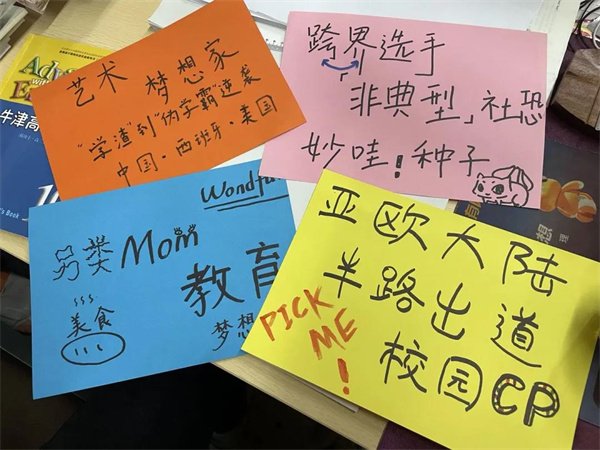 艺术 梦想家
"学渣"到"伪学霸"逆袭
中国·西班牙·美国
跨界选手
「非典型」社恐
妙哇!种子
Wondfu
另类 Mom
教育
美食
梦想
亚欧大陆
半路出道
校园CP
PICK
ME
!
牛津高